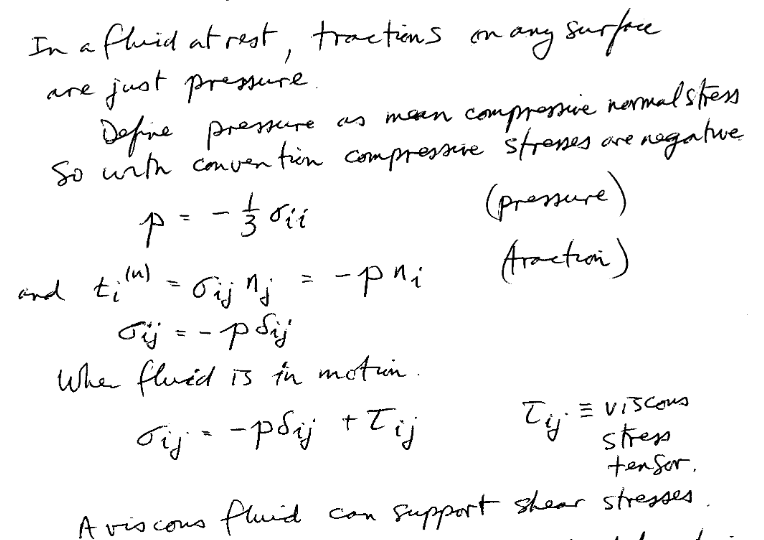 In a fluid at rest, tractions on any surface
are just pressure.
Define pressure as mean compressive normal stress
So with convention compressive stresses are negative
p = - 1/3 σii (pressure)
and ti(n) = σij nj = -p ni (traction)
σij = - p δij
When fluid is in motion.
σij = -pδij + τij τij ≡ viscous
stress
tensor.
A viscous fluid can support shear stresses.